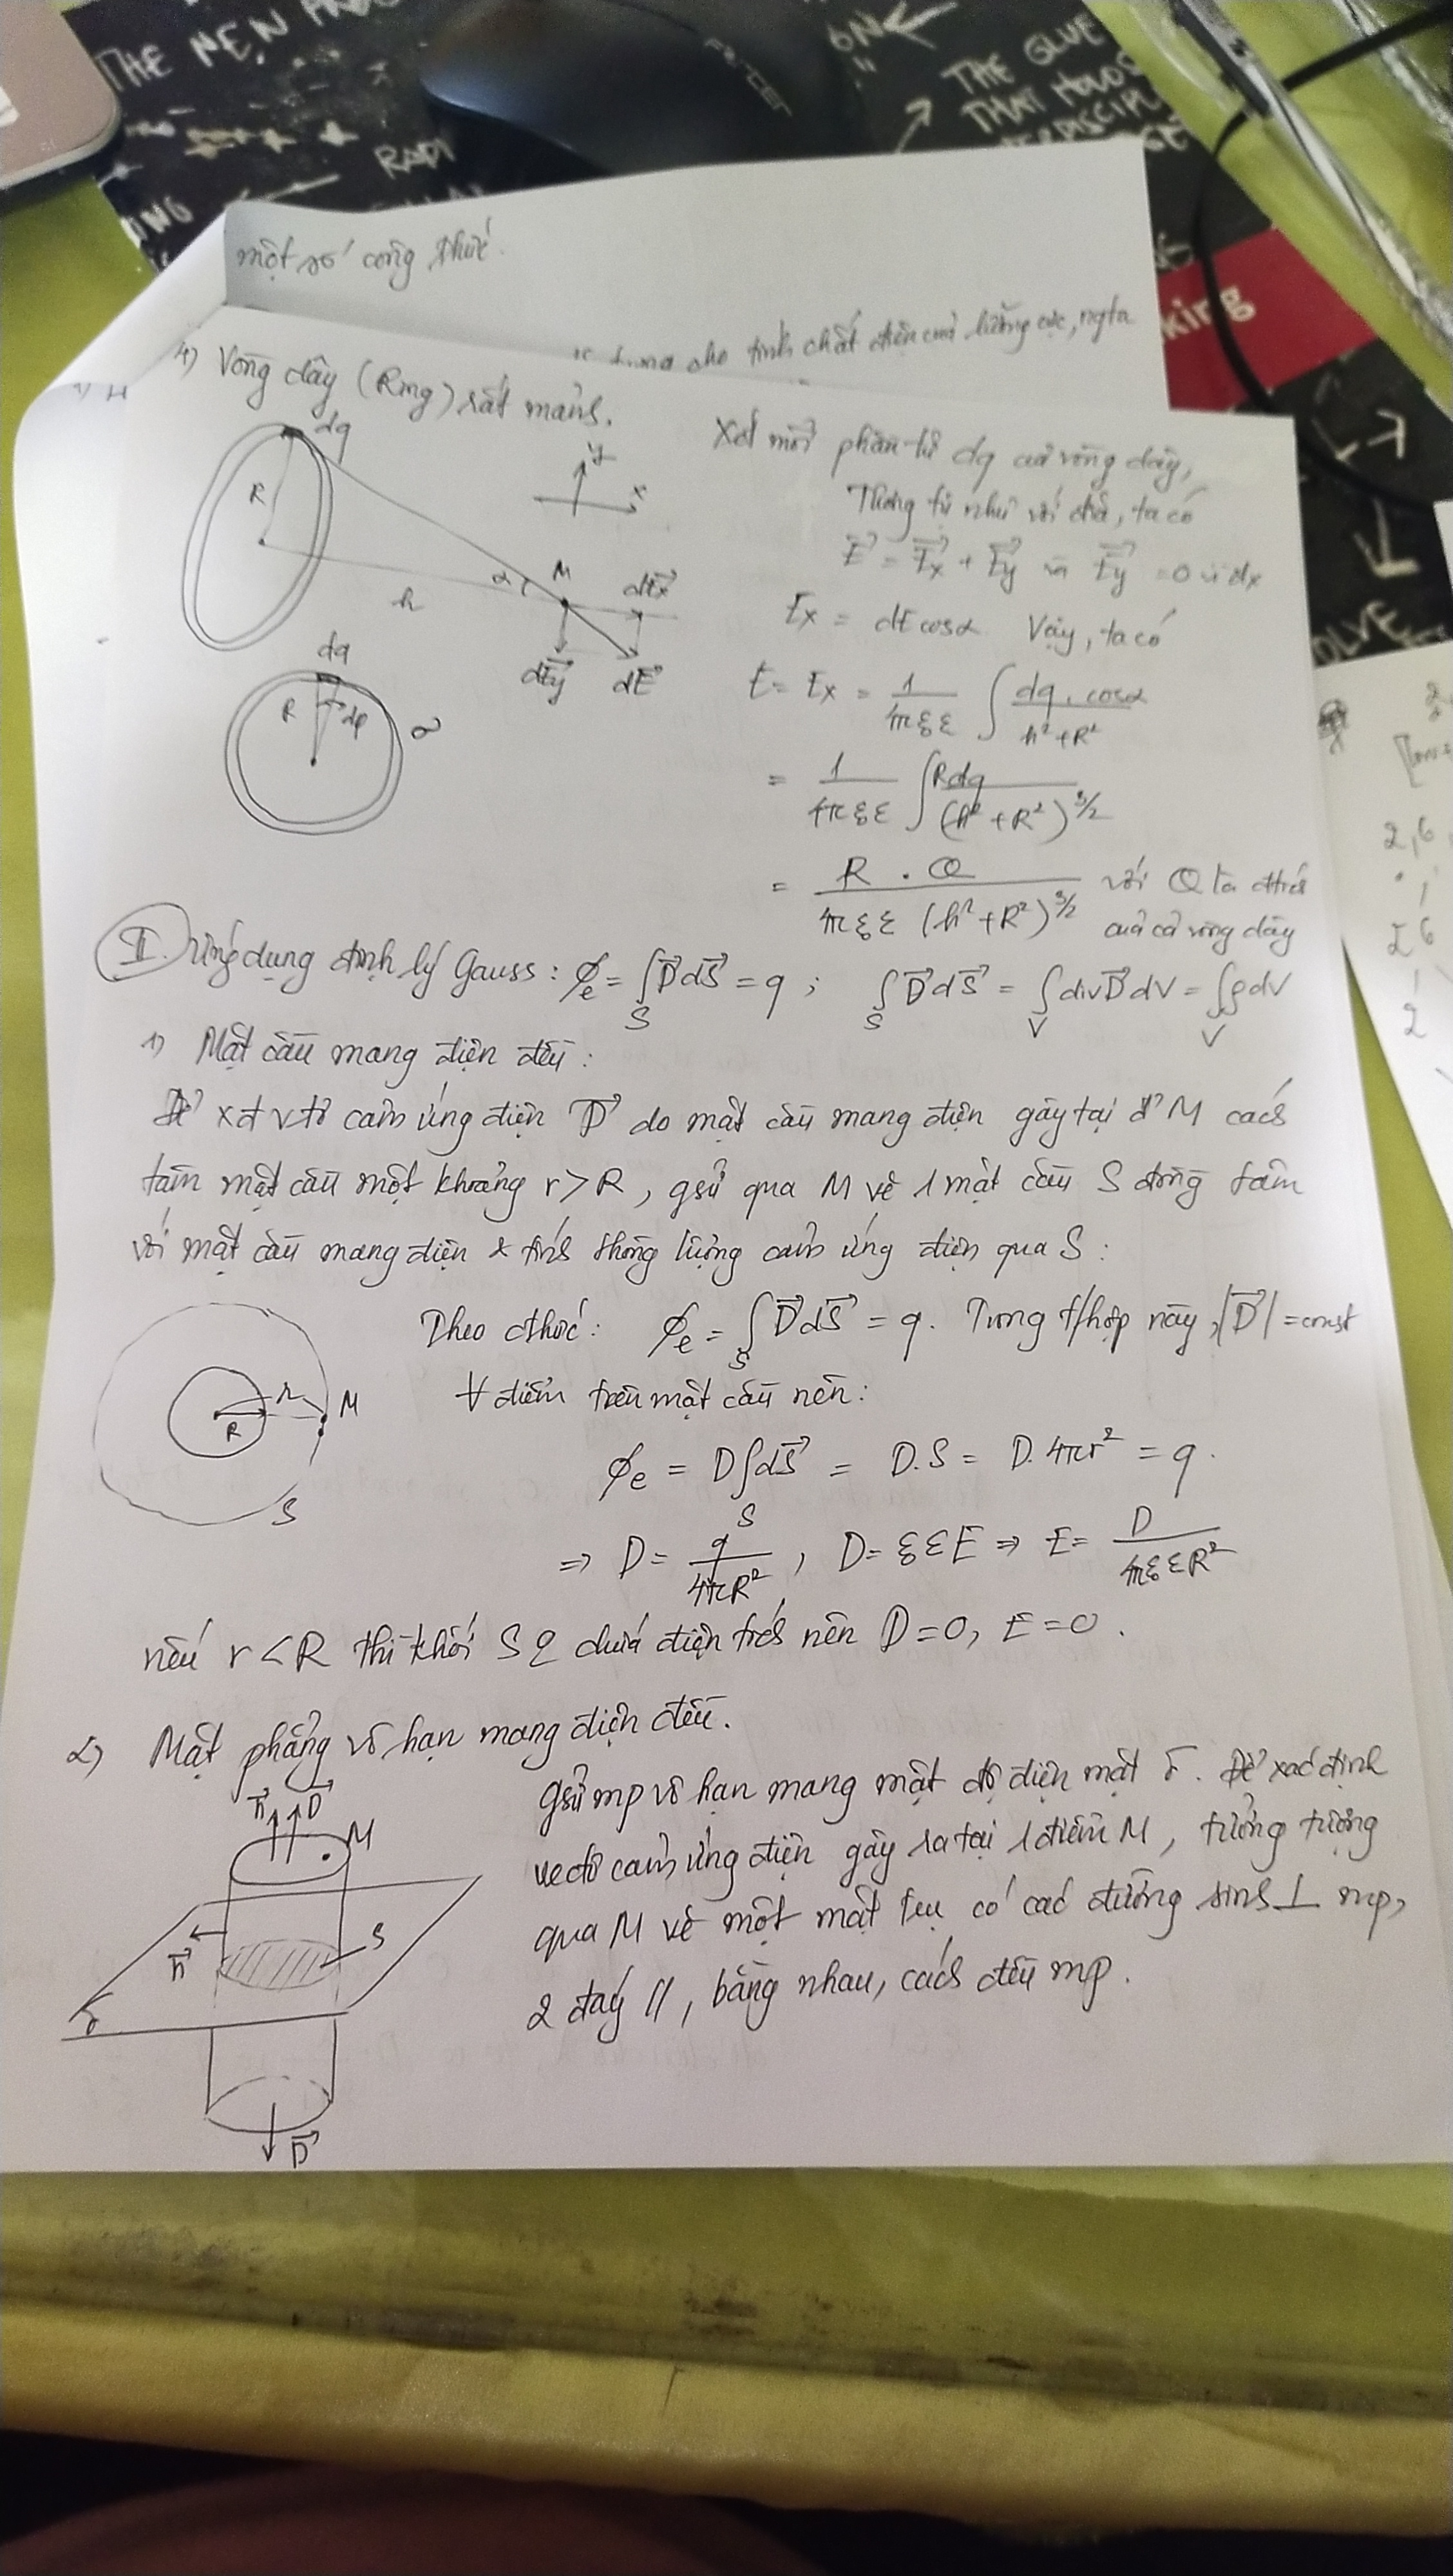 THE MEN
ON
THE GLUE
THAT HOLDS
RADI
ING
king
OLVE
một số công thức.
cho tính chất điện của lưỡng cực, ngta
4) Vòng dây (Ring) rất mảnh.
dq
R
h
α
M
y
x
dEx
dEy
dE
dq
R
dφ
Xét mỗi phần tử dq của vòng dây,
Tương tự như với đĩa, ta có
E = Ex + Ey và Ey = 0 vì đx
Ex = dE cosα Vậy, ta có
E = Ex = 1/4πε₀ε ∫ dq.cosα/h²+R²
= 1/4πε₀ε ∫ Rdq/(h²+R²)^3/2
= R.Q/4πε₀ε (h²+R²)^3/2 với Q là đtích
của cả vòng dây
II. Ứng dụng định lý Gauss: ϕe = ∫S D dS = q ; ∫S D dS = ∫V div D dV = ∫V ρdV
1) Mặt cầu mang điện đều:
Để xđ vtơ cảm ứng điện D do mặt cầu mang điện gây tại đ' M cách
tâm mặt cầu một khoảng r > R, gsử qua M vẽ 1 mặt cầu S đồng tâm
với mặt cầu mang điện & tính thông lượng cảm ứng điện qua S:
R
r
M
S
Theo cthức: ϕe = ∫S D dS = q. Trong t/hợp này, |D| = const
∀ điểm trên mặt cầu nên:
ϕe = D∫S dS = D.S = D.4πr² = q.
=> D = q/4πR², D = ε₀εE => E = D/4πε₀εR²
nếu r < R thì khối S chứa điện tích nên D = 0, E = 0.
2) Mặt phẳng vô hạn mang điện đều.
n D
M
n
S
σ
D
gsử mp vô hạn mang mật độ điện mặt σ. Để xác định
vectơ cảm ứng điện gây ra tại 1 điểm M, tưởng tượng
qua M vẽ một mặt trụ có các đường sinh ⊥ mp,
2 đáy //, bằng nhau, cách đều mp.
2,6